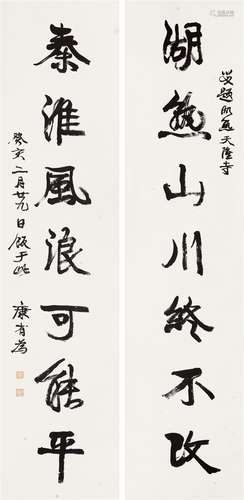 題天隆寺
湖熟山川終不改
秦淮風浪可能平
癸亥二月廿九日飯于此
康有為